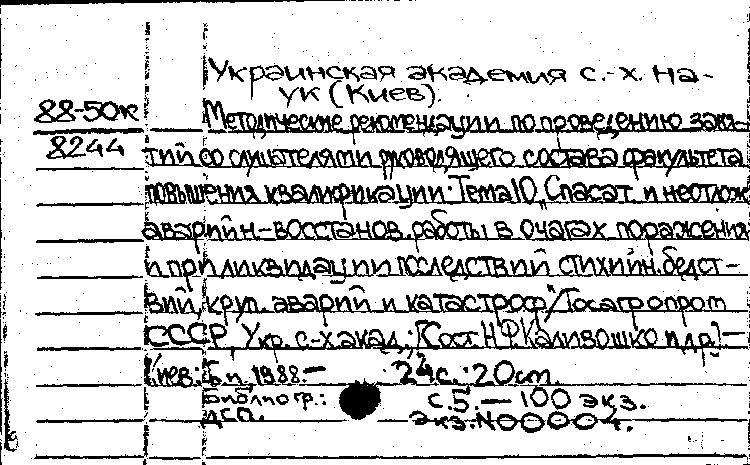 Украинская академия с.-х. на-
ук (Киев).
88-50к
8244
Методические рекомендации по проведению заня-
тий со слушателями руководящего состава факультета
повышения квалификации: Тема 10 „Спасат. и неотлож.
аварийн-восстанов. работы в очагах поражения
и при ликвидации последствий стихийн. бедст-
вий, круп. аварий и катастроф"/Госагропром
СССР, Укр. с-х акад.; [Сост. Н.Ф. Каливошко и др.]-
Киев: Б.и., 1988.-
24 с.: 20 см.
Библиогр.:
с.5. — 100 экз.
ДСП.
Экз. N00004.